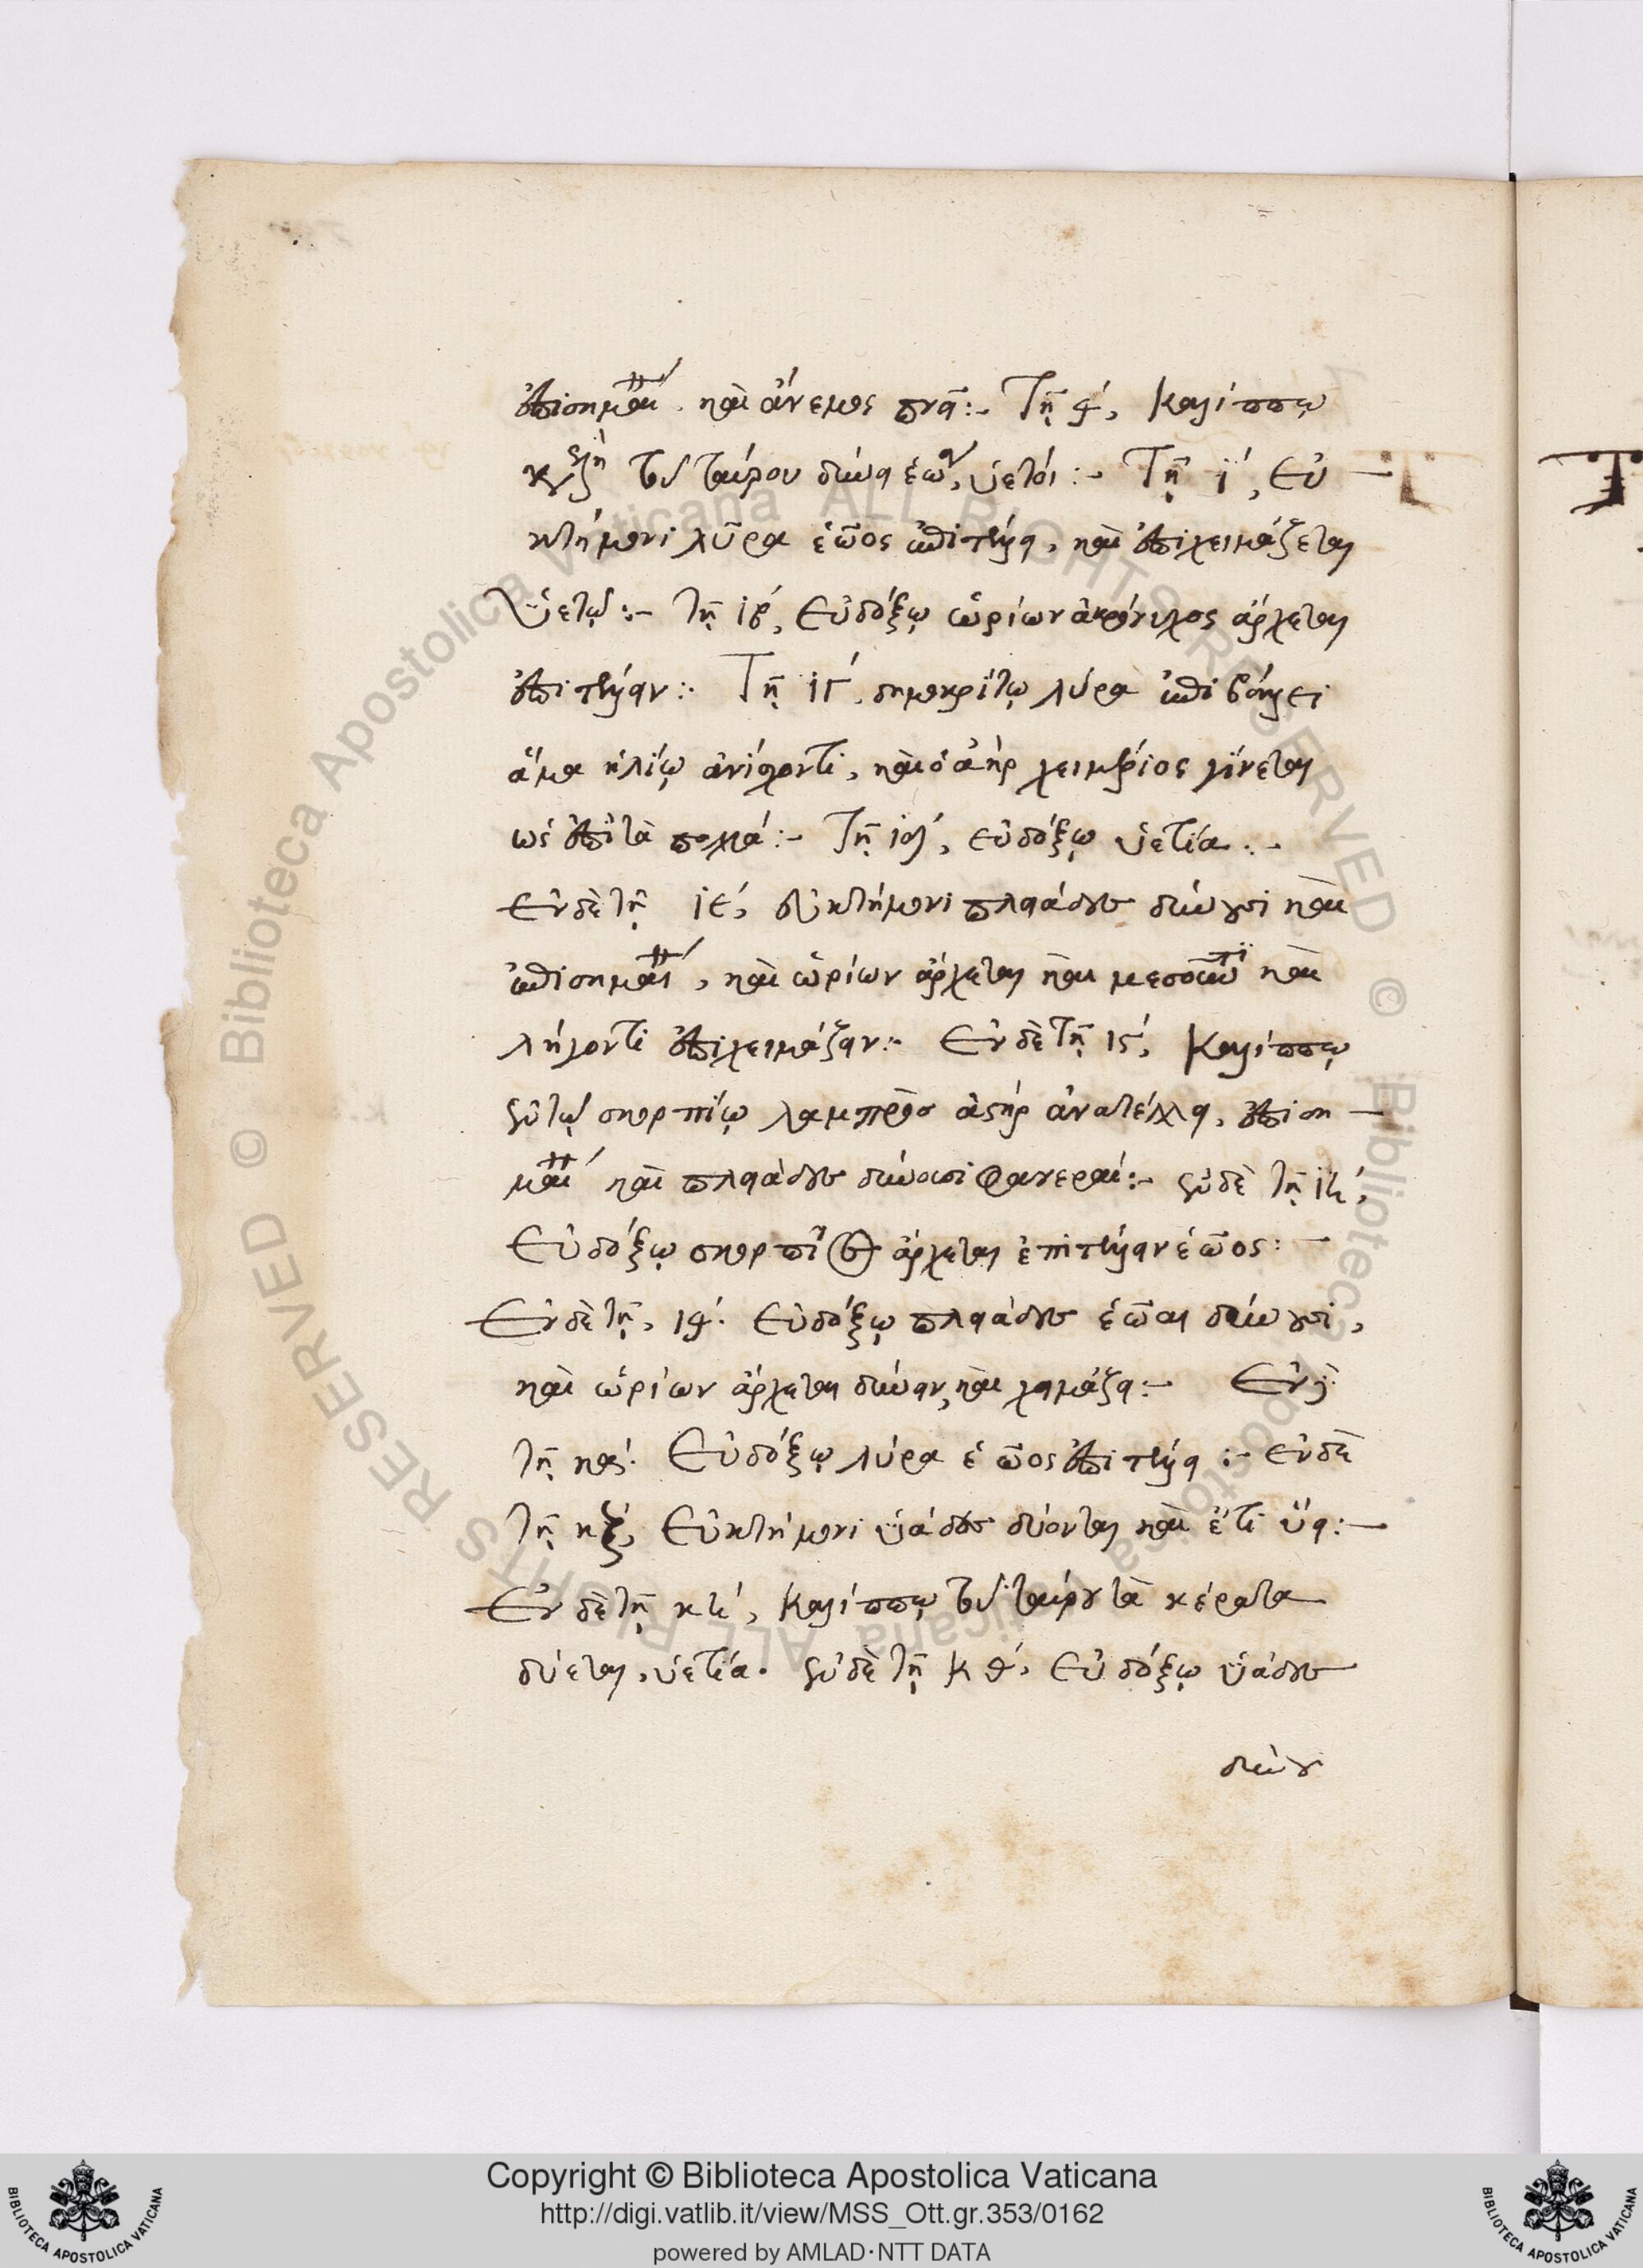 ἐπισημαί. καὶ ἄνεμος πνεῖ:- Τῇ θ, Καλίππω
τοῦ ταύρου δύνει ὑετόι:- Τῇ ι, Εὐ-
κτήμονι λῦρα ἑῶος ἐπιτέλλει, καὶ ἐπιχειμάζεται
ὑετῷ:- τῇ ιβ, Εὐδόξῳ ὠρίων ἀκρόνυχος ἄρχεται
ἐπιτέλλειν:- Τῇ ιγ, δημοκρίτῳ λύρα ἐπιτέλλει
ἅμα ἡλίῳ ἀνίσχοντι, καὶ ὁ ἀὴρ χειμέριος γίνεται
ὡς ἐπιτὰ πολλά:- Τῇ ιδ, εὐδόξῳ ὑετία:-
Ἐν δὲ τῇ ιε, εὐκτήμονι πλειάδες δύνουσι καὶ
ἐπισημαί, καὶ ὠρίων ἄρχεται καὶ μεσοῦντι καὶ
λήγοντι ἐπιχειμάζειν:- Ἐν δὲ τῇ ις, Καλίππῳ
ἐν τῷ σκορπίῳ λαμπρὸσ ἀστὴρ ἀνατέλλει, ἐπιση-
μαί καὶ πλειάδες δύνουσι φανεραί:- ἐν δὲ τῇ ιη,
Εὐδόξῳ σκορπίος ἄρχεται ἐπιτέλλειν ἑῶος:-
Ἐν δὲ τῇ, ιθ. Εὐδόξῳ πλειάδες ἑῶαι δύνουσι,
καὶ ὠρίων ἄρχεται δύνειν, καὶ χειμάζει:- Ἐν δὲ
τῇ κα. Εὐδόξῳ λύρα ἑῶος ἐπιτέλλει:- ἐν δὲ
τῇ κζ, Εὐκτήμονι ὑάδες δύονται καὶ ἔτι ὕει:-
Ἐν δὲ τῇ κη, Καλίππῳ τοῦ ταύρου τὰ κέρατα
δύεται, ὑετία. ἐν δὲ τῇ κθ, Εὐδόξῳ ὑάδες
δύνου
Copyright © Biblioteca Apostolica Vaticana
http://digi.vatlib.it/view/MSS_Ott.gr.353/0162
powered by AMLAD·NTT DATA